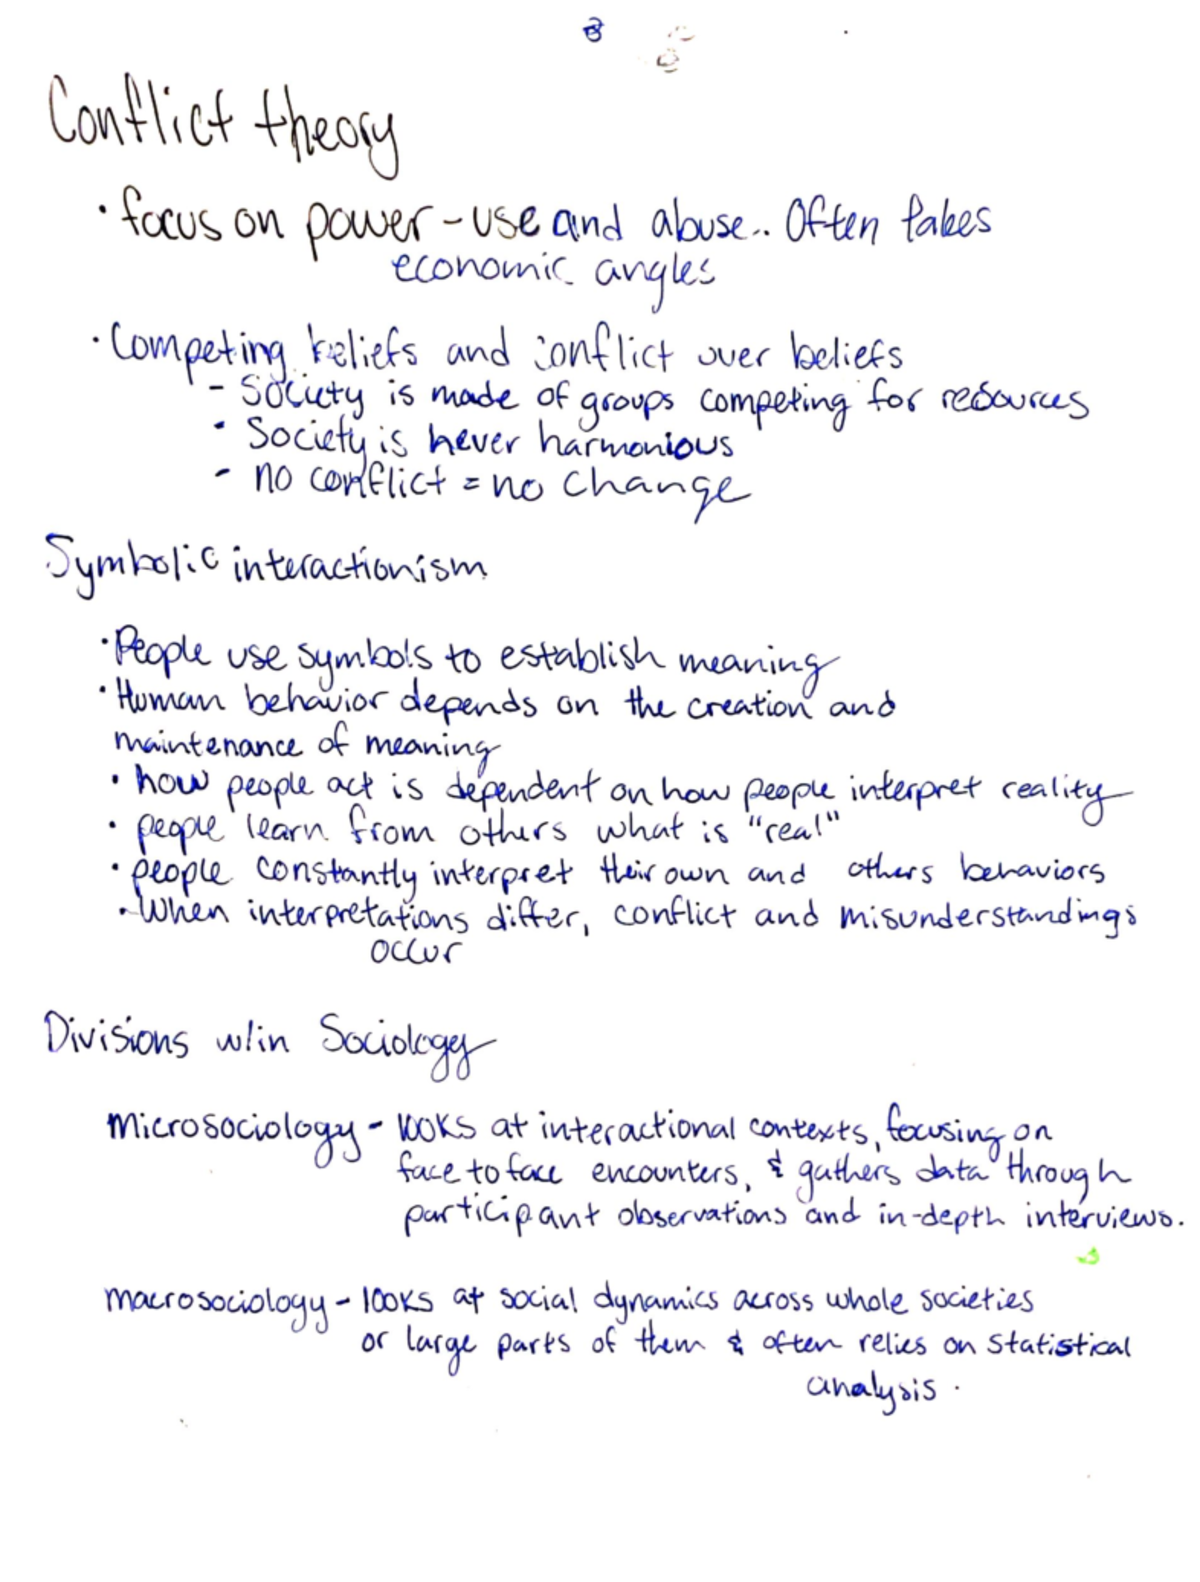 Conflict theory
· focus on power - use and abuse.. Often takes
economic angles
· Competing beliefs and conflict over beliefs
- Society is made of groups competing for resources
· Society is never harmonious
- no conflict = no change
Symbolic interactionism
· People use symbols to establish meaning
· Human behavior depends on the creation and
maintenance of meaning
· how people act is dependent on how people interpret reality
· people learn from others what is "real"
· people constantly interpret their own and others behaviors
· When interpretations differ, conflict and misunderstandings
occur
Divisions w/in Sociology
Microsociology - looks at interactional contexts, focusing on
face to face encounters, & gathers data through
participant observations and in-depth interviews.
macrosociology - looks at social dynamics across whole societies
or large parts of them & often relies on statistical
analysis.